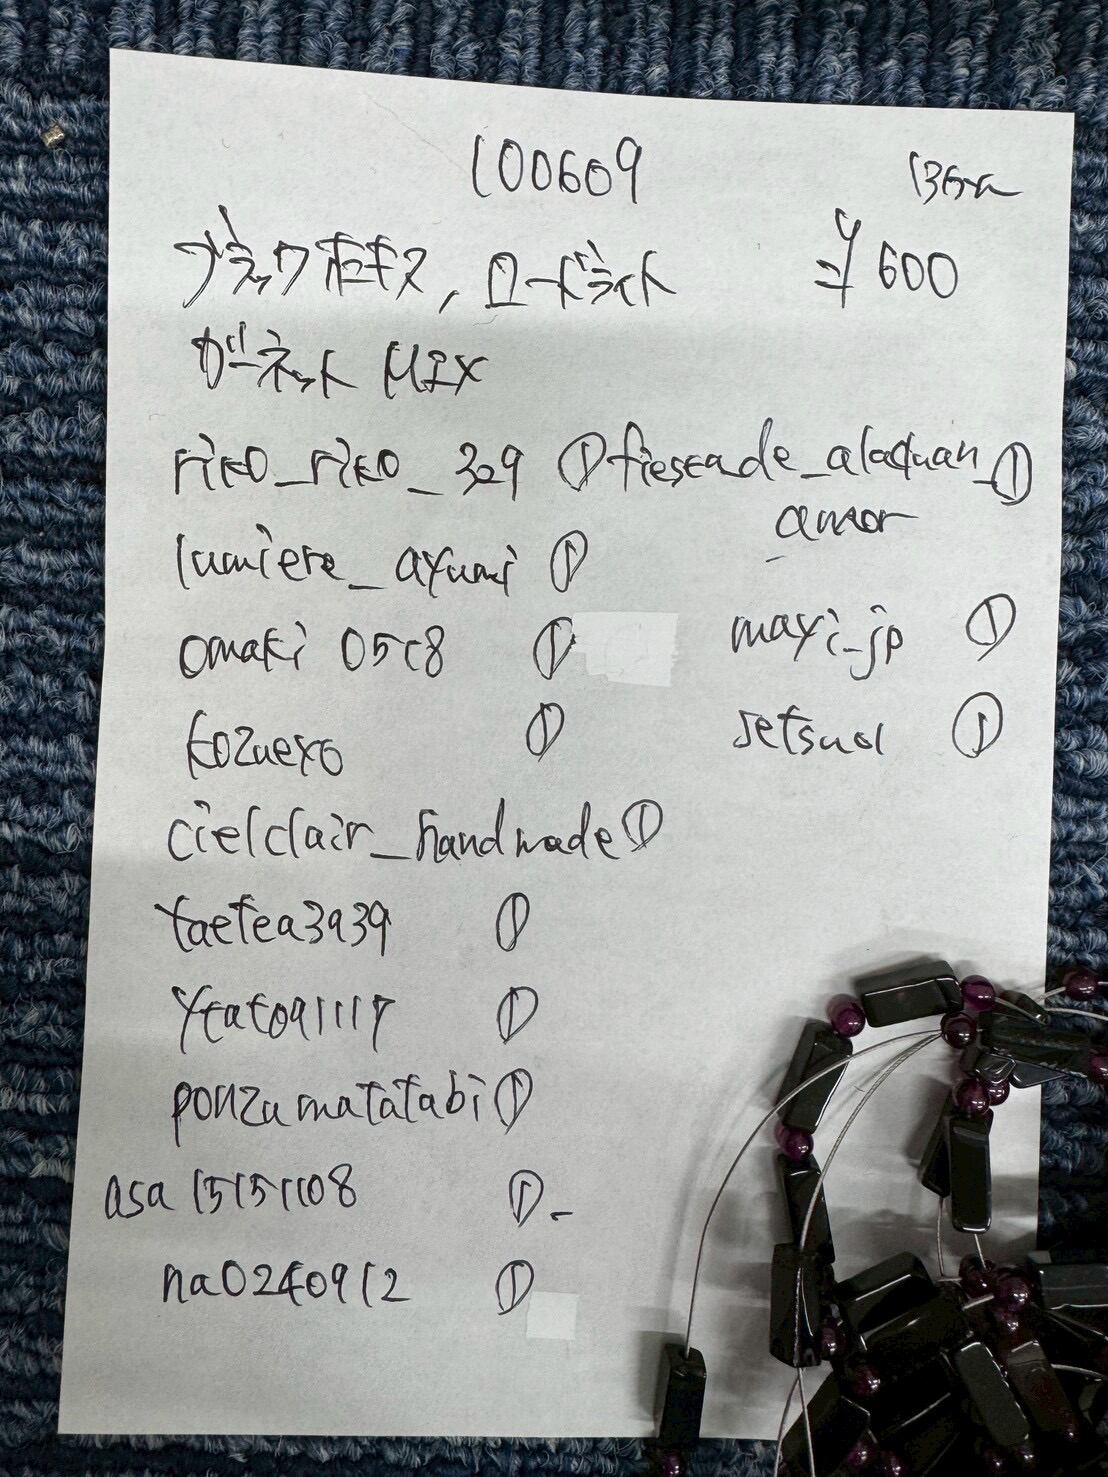 100609
13cm
ブラックオニキス, ロードライト ¥600
ガーネット MIX
riko_riko_329 ①
fiestade_alaquan_amor ①
lumiere_ayumi ①
omaki 0518 ①
mayi_jp ①
kozuexo ①
setsuol ①
cielclair_handmade ①
taetea3939 ①
ponzumatatabi ①
asa15151108 ①
na0240912 ①